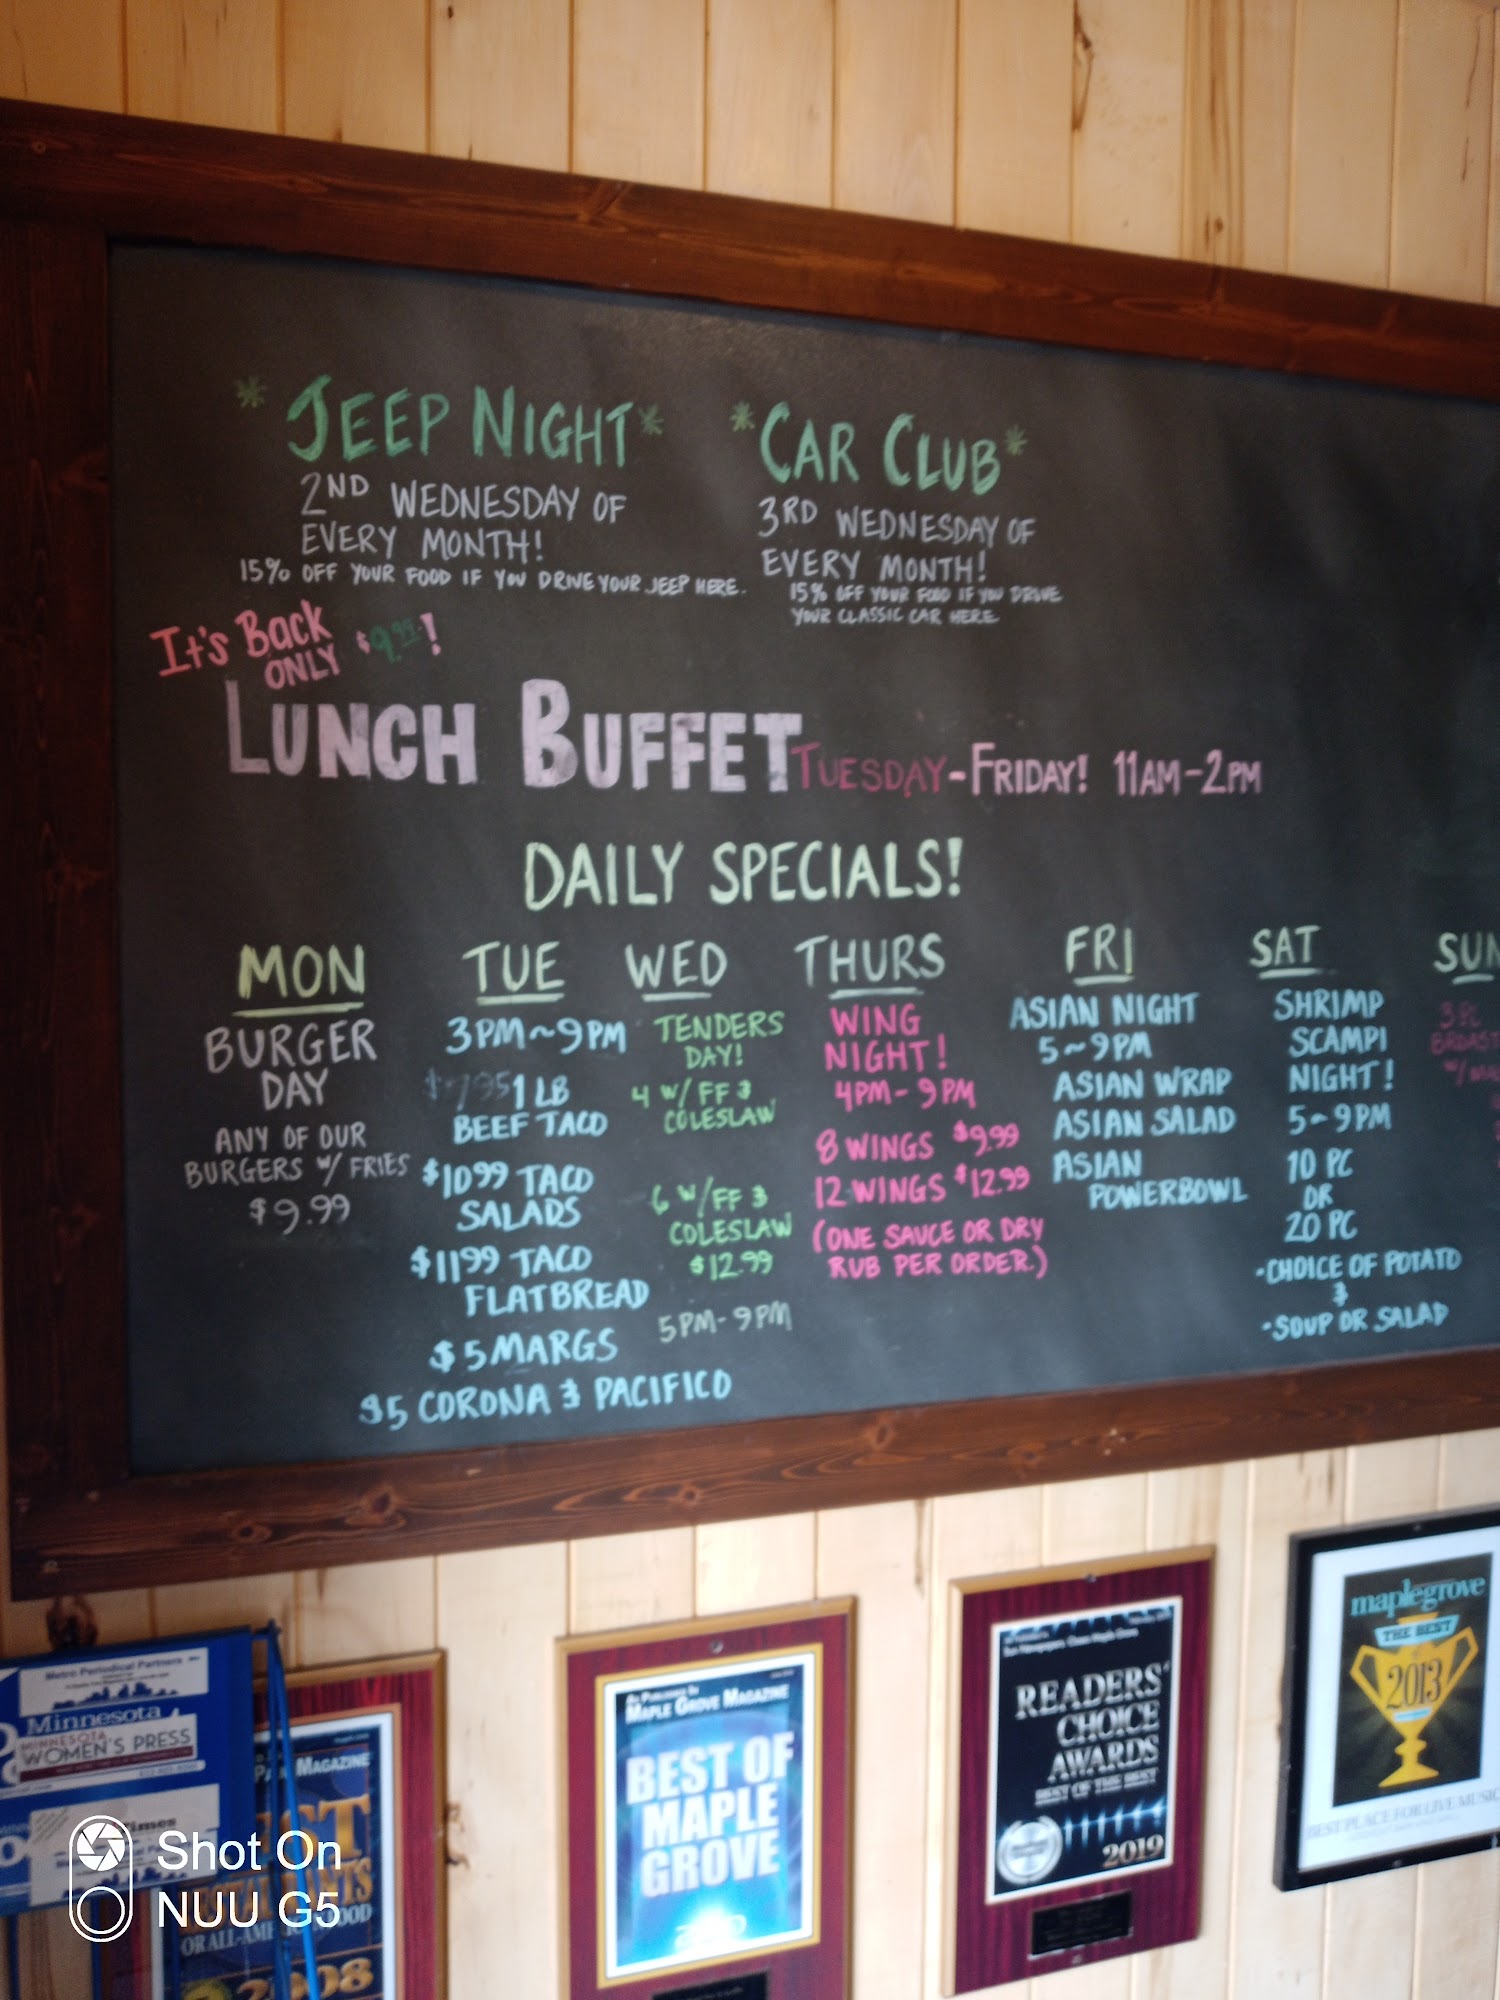 * JEEP NIGHT *
2ND WEDNESDAY OF
EVERY MONTH!
15% OFF YOUR FOOD IF YOU DRIVE YOUR JEEP HERE.
* CAR CLUB *
3RD WEDNESDAY OF
EVERY MONTH!
15% OFF YOUR FOOD IF YOU DRIVE
YOUR CLASSIC CAR HERE
IT'S BACK
ONLY $9.99!
LUNCH BUFFET TUESDAY-FRIDAY! 11AM-2PM
DAILY SPECIALS!
MON
BURGER
DAY
ANY OF OUR
BURGERS W/ FRIES
$9.99
TUE
3PM~9PM
$7.95 1 LB
BEEF TACO
$10.99 TACO
SALADS
$11.99 TACO
FLATBREAD
$5 MARGS
$5 CORONA & PACIFICO
WED
TENDERS
DAY!
4 W/FF &
COLESLAW
6 W/FF &
COLESLAW
$12.99
5PM-9PM
THURS
WING
NIGHT!
4PM-9PM
8 WINGS $9.99
12 WINGS $12.99
(ONE SAUCE OR DRY
RUB PER ORDER.)
FRI
ASIAN NIGHT
5~9PM
ASIAN WRAP
ASIAN SALAD
ASIAN
POWERBOWL
SAT
SHRIMP
SCAMPI
NIGHT!
5~9PM
10 PC
OR
20 PC
·CHOICE OF POTATO
&
·SOUP OR SALAD
SUN
3 PC
Metro Periodical Partners
Minnesota
MINNESOTA
WOMEN'S PRESS
Times
MAGAZINE
2008
AS PUBLISHED IN
MAPLE GROVE MAGAZINE
BEST OF
MAPLE
GROVE
Sun Newspapers
READERS'
CHOICE
AWARDS
BEST OF THE BEST
2019
maplegrove
THE BEST
2013
BEST PLACE FOR LIVE MUSIC
Shot On
NUU G5